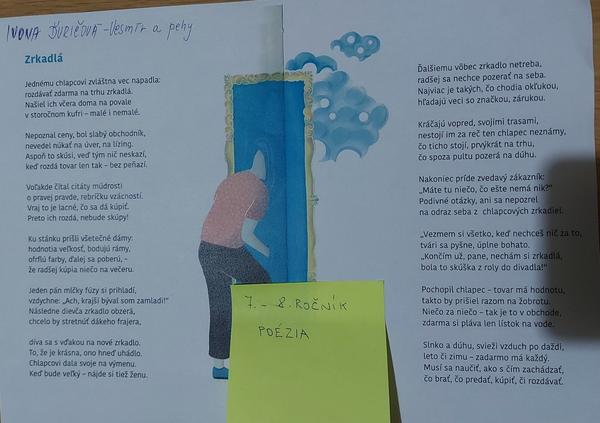 Ivona Ďuričová - Vesmír a pehy
Zrkadlá
Jednému chlapcovi zvláštna vec napadla:
rozdávať zdarma na trhu zrkadlá.
Našiel ich včera doma na povale
v storočnom kufri – malé i nemalé.
Nepoznal ceny, bol slabý obchodník,
nevedel núkať na úver, na lízing.
Aspoň to skúsi, veď tým nič neskazí,
keď rozdá tovar len tak – bez peňazí.
Voľakde čítal citáty múdrosti
o pravej pravde, rebríčku vzácností.
Vraj to je lacné, čo sa dá kúpiť.
Preto ich rozdá, nebude skúpy!
Ku stánku prišli všetečné dámy:
hodnotia veľkosť, bodujú rámy,
ofrflú farby, ďalej sa poberú, –
že radšej kúpia niečo na večeru.
Jeden pán mĺčky fúzy si prihladí,
vzdychne: „Ach, krajší býval som zamladi!“
Následne dievča zrkadlo obzerá,
chcelo by stretnúť dákeho frajera,
díva sa s vďakou na nové zrkadlo.
To, že je krásna, ono hneď uhádlo.
Chlapcovi dala svoje na výmenu.
Keď bude veľký – nájde si tiež ženu.
7. - 8. ROČNÍK
POÉZIA
Ďalšiemu vôbec zrkadlo netreba,
radšej sa nechce pozerať na seba.
Najviac je takých, čo chodia okľukou,
hľadajú veci so značkou, zárukou.
Kráčajú vopred, svojimi trasami,
nestojí im za reč ten chlapec neznámy,
čo ticho stojí, prvýkrát na trhu,
čo spoza pultu pozerá na dúhu.
Nakoniec príde zvedavý zákazník:
„Máte tu niečo, čo ešte nemá nik?“
Podivné otázky, ani sa nepozrel
na odraz seba z chlapcových zrkadiel.
„Vezmem si všetko, keď nechceš nič za to,
tvári sa pyšne, úplne bohato.
„Končím už, pane, nechám si zrkadlá,
bola to skúška z roly do divadla!“
Pochopil chlapec – tovar má hodnotu,
takto by prišiel razom na žobrotu.
Niečo za niečo – tak je to v obchode,
zdarma si pláva len lístok na vode.
Slnko a dúhu, svieži vzduch po daždi,
leto či zimu – zadarmo má každý.
Musí sa naučiť, ako s čím zachádzať,
čo brať, čo predať, kúpiť, či rozdávať.